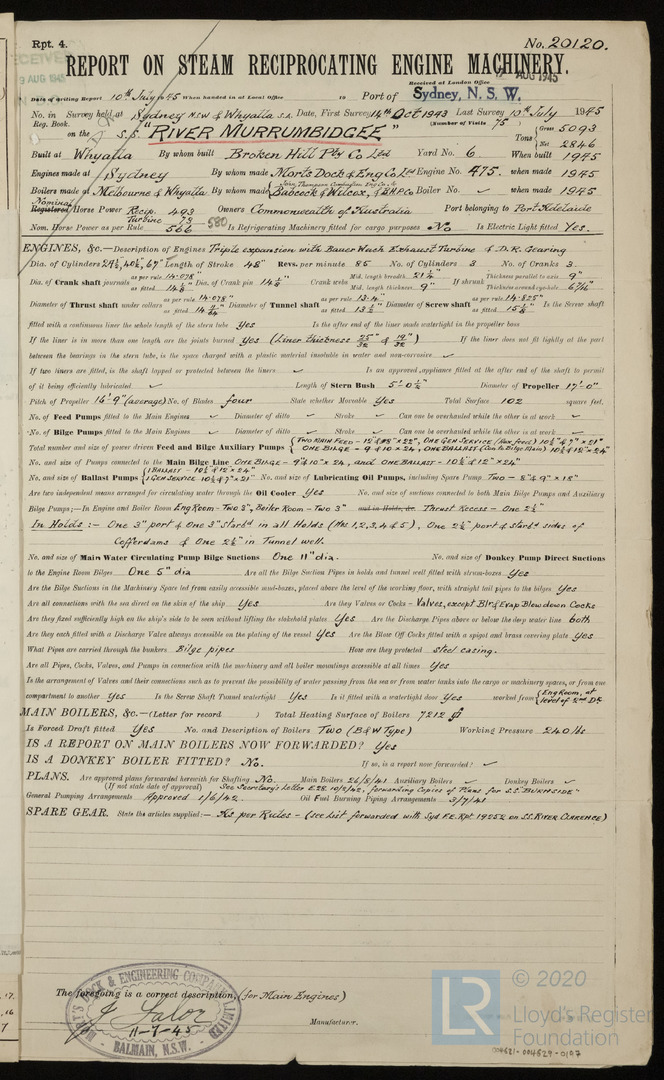 Rpt. 4.
No. 20120.
REPORT ON STEAM RECIPROCATING ENGINE MACHINERY.
9 AUG 1945
Received at London Office AUG 1945
Date of writing Report 10th July 1945 When handed in at Local Office to Port of Sydney, N. S. W.
No. in Survey held at Sydney N.S.W & Whyalla S.A. Date, First Survey 14th Oct 1943 Last Survey 10th July 1945
Reg. Book. (Number of Visits 75)
on the S.S. "RIVER MURRUMBIDGEE" Tons Gross 5093
Net 2846
Built at Whyalla By whom built Broken Hill Pty Co Ltd Yard No. 6 When built 1945
Engines made at Sydney By whom made Morts Dock & Eng Co Ltd Engine No. 475. when made 1945
Boilers made at Melbourne & Whyalla By whom made Babcock & Wilcox, & B.H.P. Co Boiler No. ✓ when made 1945
Nominal
Registered Horse Power Recip. 493 Turbine 73 Owners Commonwealth of Australia Port belonging to Port Adelaide
Nom. Horse Power as per Rule 566 580 Is Refrigerating Machinery fitted for cargo purposes No Is Electric Light fitted Yes.
ENGINES, &c.—Description of Engines Triple expansion with Bauer Wach Exhaust Turbine & D.R. Gearing
Dia. of Cylinders 24½, 40½, 67" Length of Stroke 48" Revs. per minute 85 No. of Cylinders 3 No. of Cranks 3.
Dia. of Crank shaft journals as per rule 14.078" as fitted 14⅛" Dia. of Crank pin 14⅛" Crank webs Mid. length breadth 21½" Mid. length thickness 9" If shrunk Thickness parallel to axis 9" Thickness around eyehole
Diameter of Thrust shaft under collars as per rule 14.078" as fitted Diameter of Tunnel shaft as per rule 13.4" as fitted 13½" Diameter of Screw shaft as per rule 14.825" as fitted 15⅛" Is the Screw shaft
fitted with a continuous liner the whole length of the stern tube Yes Is the after end of the liner made watertight in the propeller boss
If the liner is in more than one length are the joints burned Yes (Liner thickness 25/32" & 19/32") If the liner does not fit tightly at the part
between the bearings in the stern tube, is the space charged with a plastic material insoluble in water and non-corrosive ✓
If two liners are fitted, is the shaft lapped or protected between the liners ✓ Is an approved appliance fitted at the after end of the shaft to permit
of it being efficiently lubricated ✓ Length of Stern Bush 5'-0½" Diameter of Propeller 17'-0"
Pitch of Propeller 16'-9" (average) No. of Blades four State whether Moveable Yes Total Surface 102 square feet.
No. of Feed Pumps fitted to the Main Engines ✓ Diameter of ditto ✓ Stroke ✓ Can one be overhauled while the other is at work ✓
No. of Bilge Pumps fitted to the Main Engines ✓ Diameter of ditto ✓ Stroke ✓ Can one be overhauled while the other is at work ✓
Total number and size of power driven Feed and Bilge Auxiliary Pumps { TWO MAIN FEED - 12" & 8" × 22", ONE GEN SERVICE (Aux. feed) 10½" & 7" × 21"
ONE BILGE - 9" & 10" × 24", ONE BALLAST (Con. to Bilge Main) 10½" & 12" × 24"
No. and size of Pumps connected to the Main Bilge Line ONE BILGE - 9" & 10" × 24, and ONE BALLAST - 10½" & 12" × 24"
No. and size of Ballast Pumps { 1 BALLAST - 10½ & 12" × 24" 1 GEN SERVICE 10½ & 7" × 21" No. and size of Lubricating Oil Pumps, including Spare Pump Two - 8" & 9" × 18"
Are two independent means arranged for circulating water through the Oil Cooler Yes No. and size of suctions both to Main Bilge Pumps and Auxiliary
Bilge Pumps;—In Engine and Boiler Room Eng Room - Two 3", Boiler Room - Two 3" Thrust Recess - One 2½"
In Holds:- One 3" port & One 3" starbd in all Holds (Nos 1, 2, 3, 4 & 5), One 2½" port & starbd sides of
Cofferdams & One 2½" in Tunnel well.
No. and size of Main Water Circulating Pump Bilge Suctions One 11" dia. No. and size of Donkey Pump Direct Suctions
to the Engine Room Bilges One 5" dia Are all the Bilge Suction Pipes in holds and tunnel well fitted with strum-boxes Yes
Are the Bilge Suctions in the Machinery Space led from easily accessible mud-boxes, placed above the level of the working floor, with straight tail pipes to the bilges Yes
Are all connections with the sea direct on the skin of the ship Yes Are they Valves or Cocks - Valves, except Blr & Evap Blow down Cocks
Are they fixed sufficiently high on the ship's side to be seen without lifting the stokehold plates Yes Are the Discharge Pipes above or below the deep water line both
Are they each fitted with a Discharge Valve always accessible on the plating of the vessel Yes Are the Blow Off Cocks fitted with a spigot and brass covering plate Yes
What Pipes are carried through the bunkers Bilge pipes How are they protected steel casing.
Are all Pipes, Cocks, Valves, and Pumps in connection with the machinery and all boiler mountings accessible at all times Yes
Is the arrangement of Valves and their connections such as to prevent the possibility of water passing from the sea or from water tanks into the cargo or machinery spaces, or from one
compartment to another Yes Is the Screw Shaft Tunnel watertight Yes Is it fitted with a watertight door Yes worked from { Eng Room, at level of 2nd Dk
MAIN BOILERS, &c.—(Letter for record ) Total Heating Surface of Boilers 7212
Is Forced Draft fitted Yes No. and Description of Boilers Two (B&W Type) Working Pressure 240 lbs
IS A REPORT ON MAIN BOILERS NOW FORWARDED? Yes
IS A DONKEY BOILER FITTED? No. If so, is a report now forwarded? ✓
PLANS. Are approved plans forwarded herewith for Shafting No. Main Boilers 26/8/41 Auxiliary Boilers ✓ Donkey Boilers ✓
(If not state date of approval) See Secretary's Letter E.28. 10/2/42, forwarding Copies of Plans for S.S. "BURNSIDE"
General Pumping Arrangements Approved 1/6/42. Oil Fuel Burning Piping Arrangements 3/7/41
SPARE GEAR. State the articles supplied:— As per Rules - (see List forwarded with Syd F.E. Rpt 19252 on SS. RIVER CLARENCE)
The foregoing is a correct description, (for Main Engines)
MORT'S DOCK & ENGINEERING COMPANY LIMITED
11-7-45
BALMAIN, N.S.W.
Manufacturer.
17.
16
7
LR
© 2020
Lloyd's Register
Foundation
004821-004829-0107